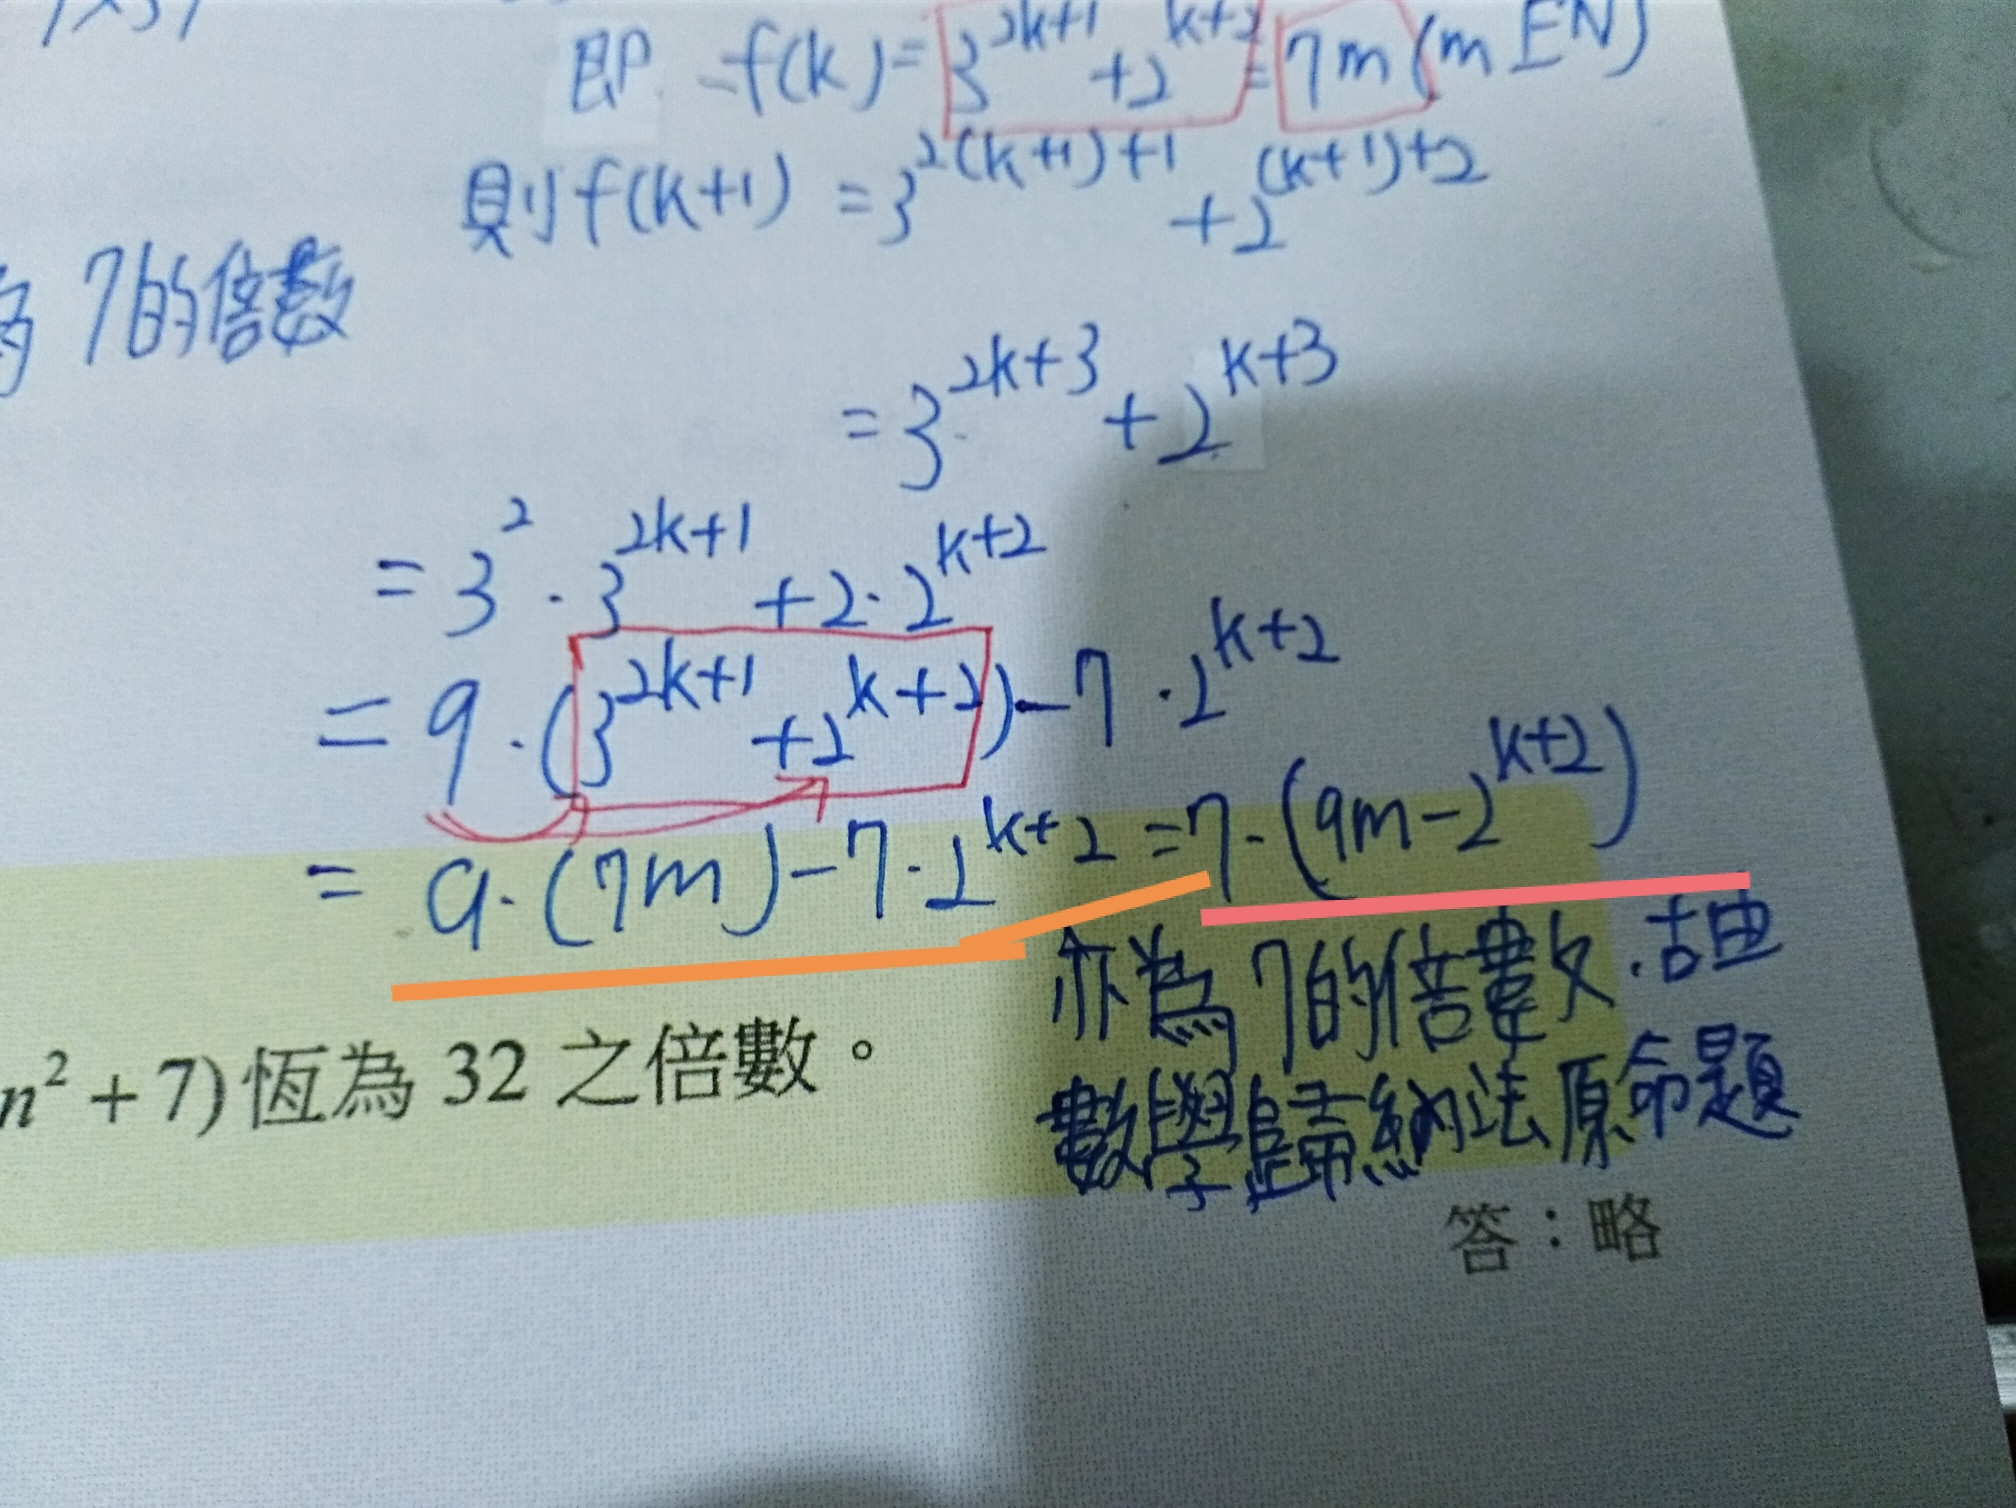 即 f(k)=3^{2k+1}+2^{k+2}=7m(m∈N)
則f(k+1)=3^{2(k+1)+1}+2^{(k+1)+2}
7的倍數
=3^{2k+3}+2^{k+3}
=3^{2}·3^{2k+1}+2·2^{k+2}
=9·(3^{2k+1}+2^{k+2})-7·2^{k+2}
=9·(7m)-7·2^{k+2}=7·(9m-2^{k+2})
亦為7的倍數.故由
n²+7)恆為 32 之倍數。
數學歸納法原命題
答：略